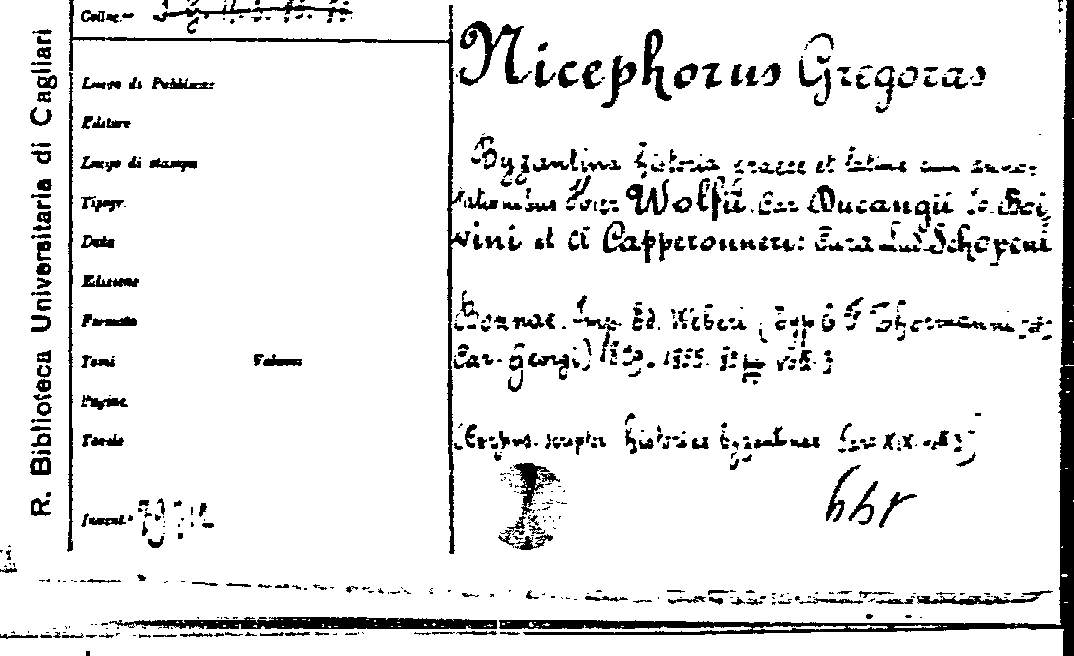 R. Biblioteca Universitaria di Cagliari
Colloc.
Luogo di Pubblicaz.
Editore
Luogo di stampa
Tipogr.
Data
Edizione
Formato
Tomi Volume
Pagine
Tavole
Invent.
Nicephorus Gregoras
Byzantina historia graece et latine cum anno-
tationibus Hier Wolfii. Car Ducangii Io. Boi,
vini et Cl Capperonneri: Cura Lud Schopeni
Bonnae. Imp Ed. Weberi (Typ G F Thormanni
Car. Georgi) 1829. 1855. 8º voll. 3
(Corpus. scriptor historiae byzantinae